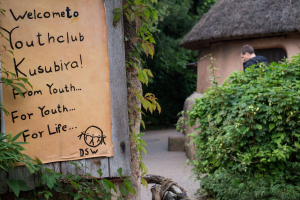 Welcome to
Youthclub
Kusubira!
From Youth...
For Youth...
For Life...
DSW